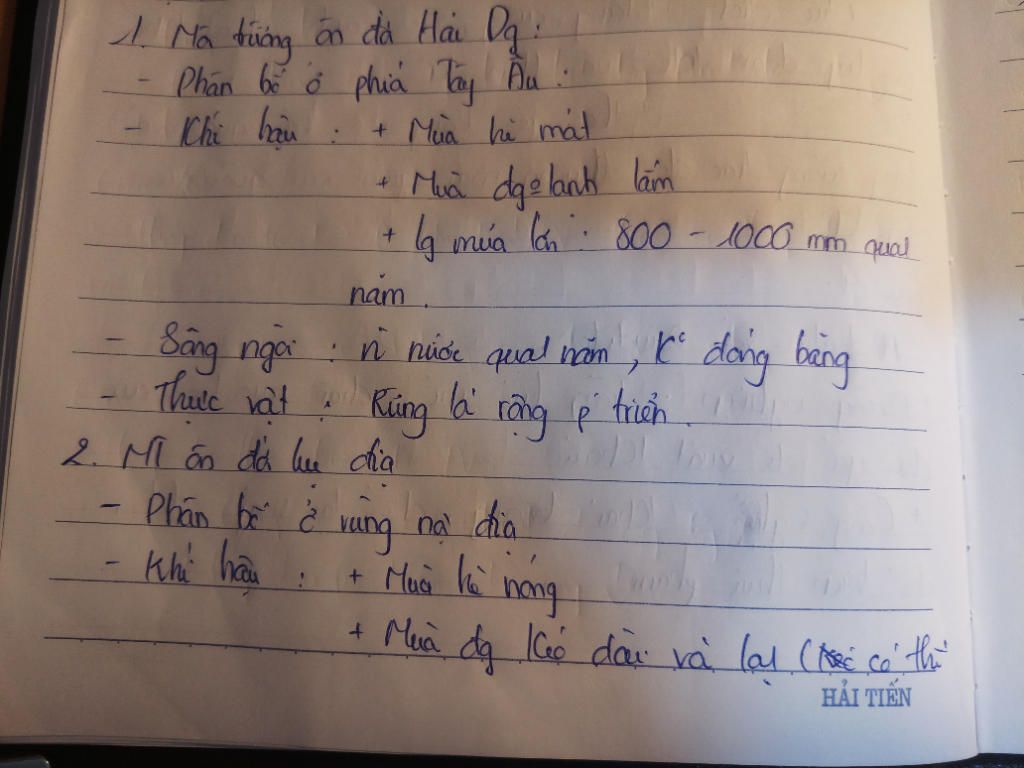 1. Mô trường ôn đớ Hải Dg :
- Phân bố ở phía Tây Âu :
- Khí hậu : + Mùa hè mát
+ Mùa đg lạnh lắm
+ lg mưa lớn : 800 - 1000 mm quanh
năm .
- Sông ngòi : n` nước quanh năm , K° đóng băng
- Thực vật : Rừng lá rộng p' triển .
2. MT ôn đớ lục địa
- Phân bố ở vùng nội địa
- Khí hậu : + Mùa hè nóng
+ Mùa đg kéo dài và lạ ( có thể
HẢI TIẾN